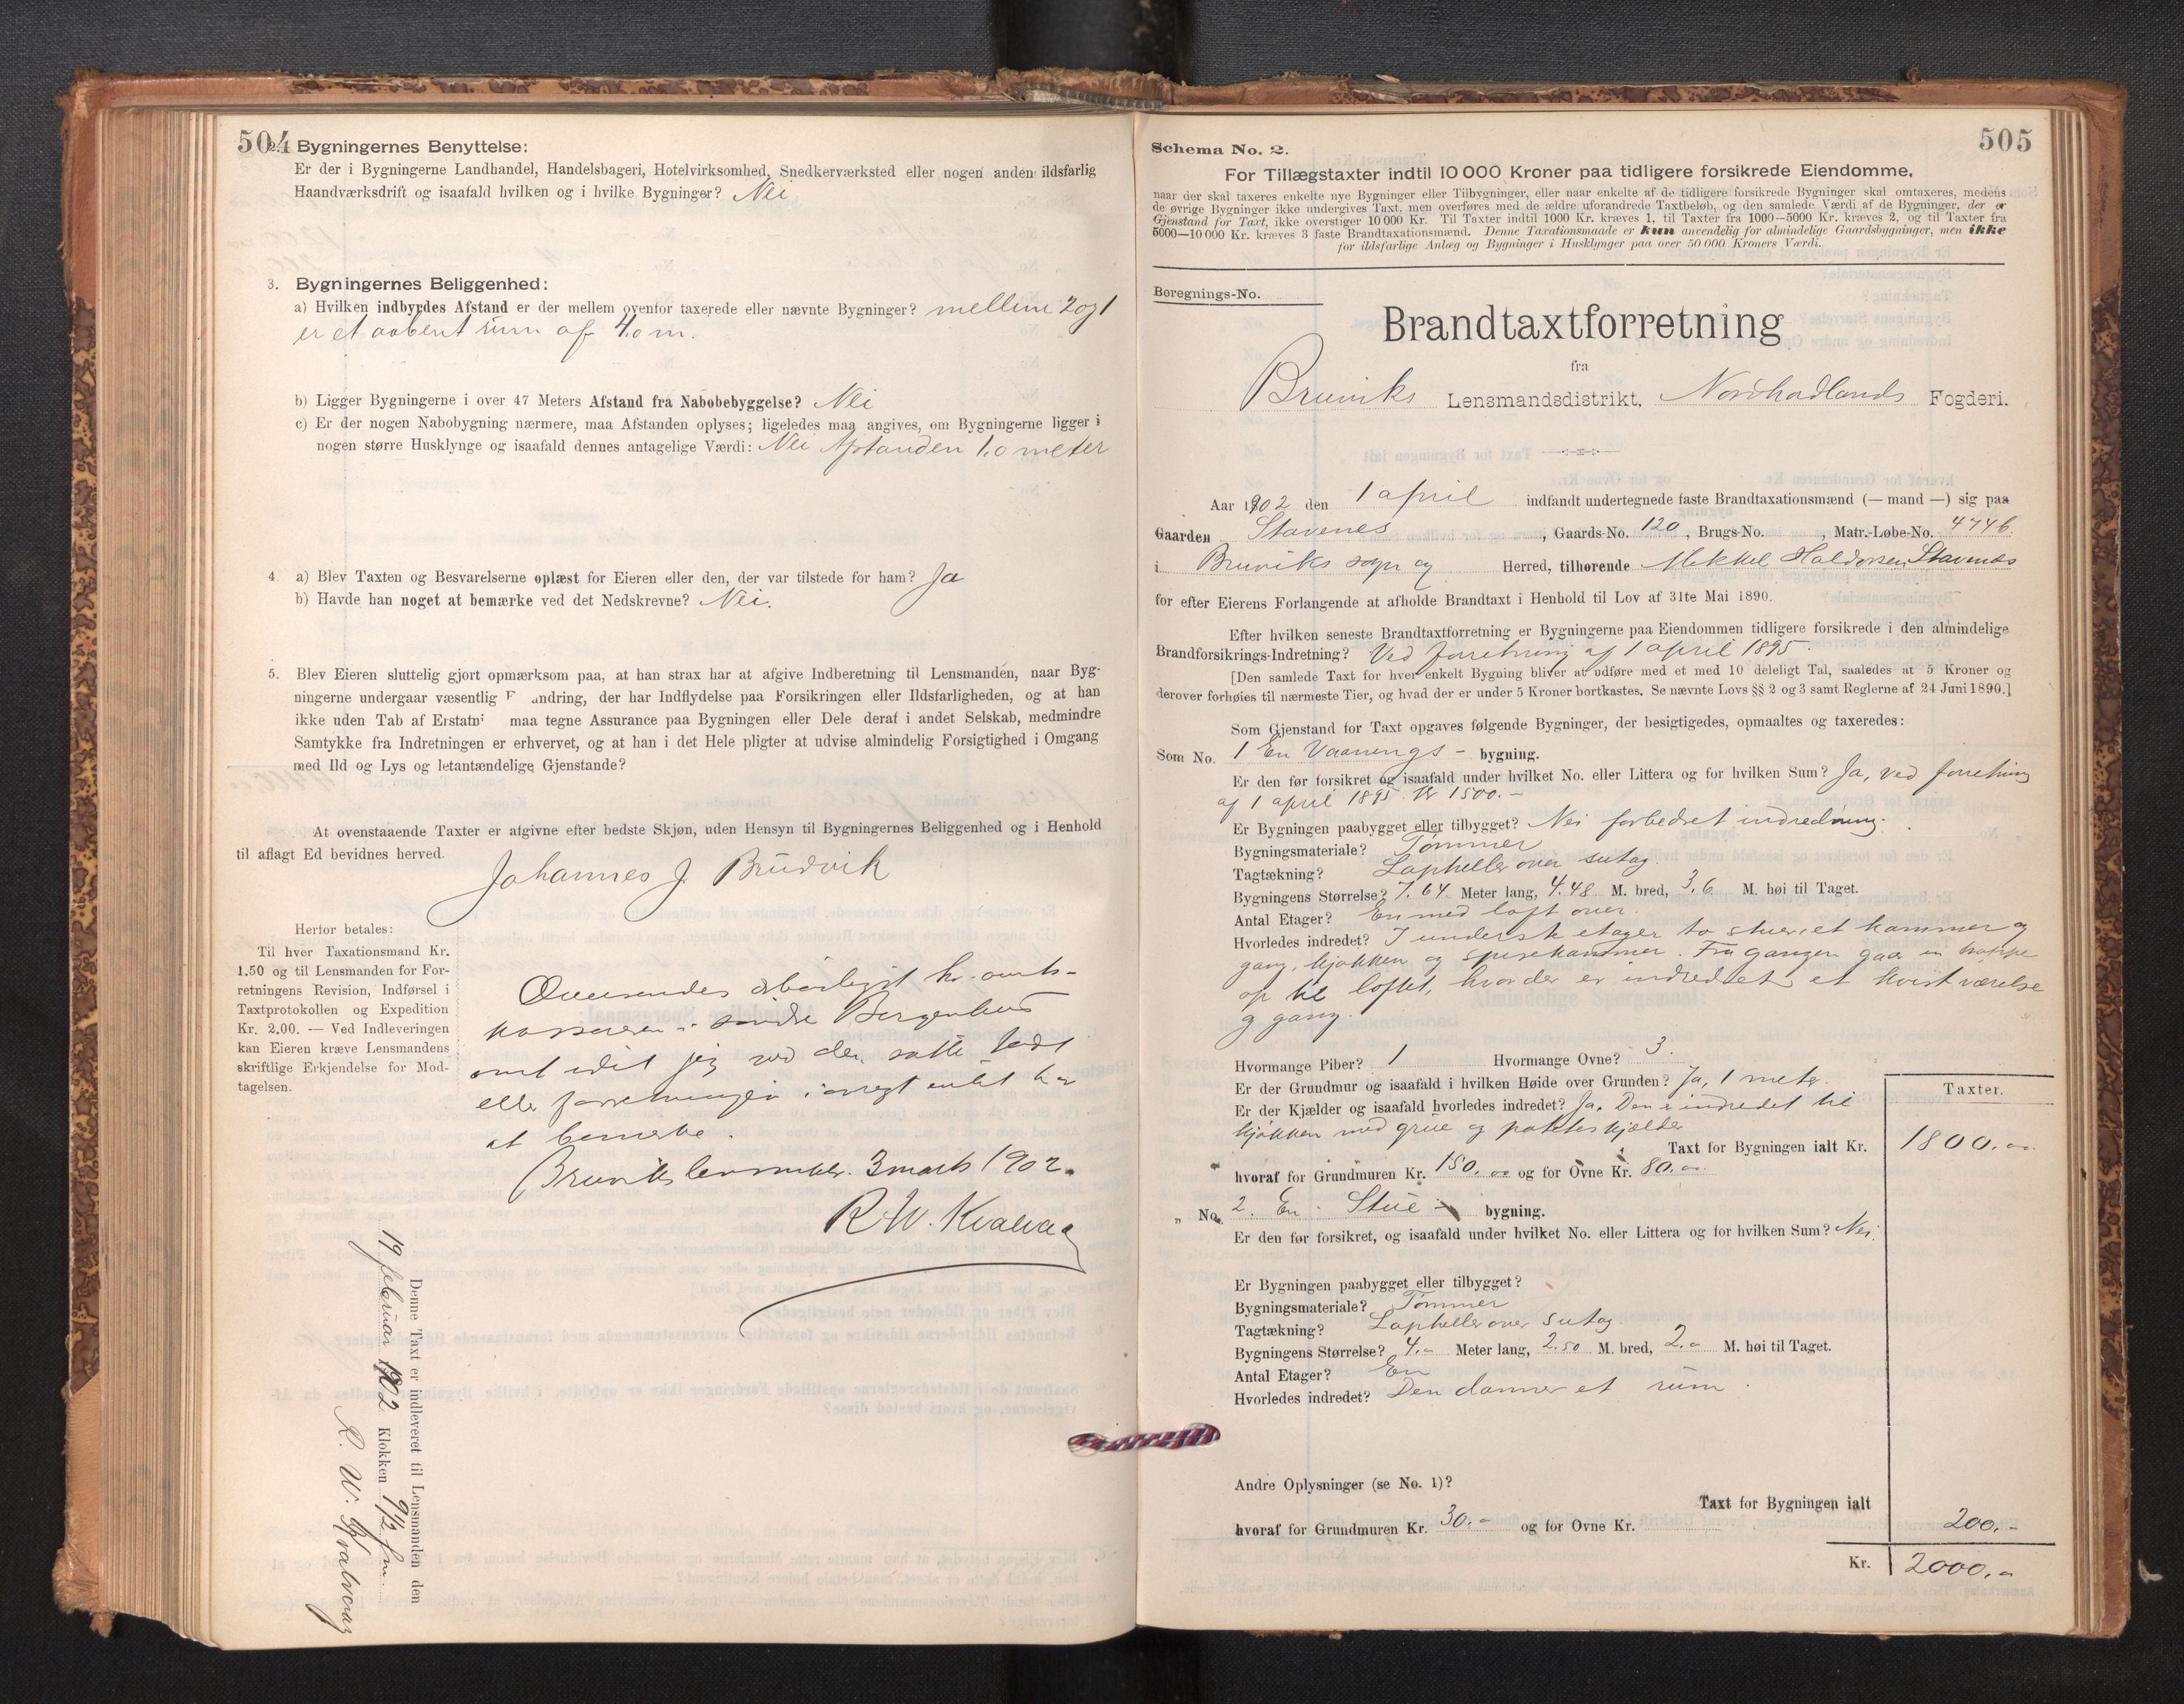 504
2. Bygningernes Benyttelse:
Er der i Bygningerne Landhandel, Handelsbageri, Hotelvirksomhed, Snedkerværksted eller nogen anden ildsfarlig
Haandværksdrift og isaafald hvilken og i hvilke Bygninger? Nei
3. Bygningernes Beliggenhed:
a) Hvilken indbyrdes Afstand er der mellem ovenfor taxerede eller nævnte Bygninger? mellem 2 og 1
er et aabent rum af 4.0 m.
b) Ligger Bygningerne i over 47 Meters Afstand fra Nabobebyggelse? Nei
c) Er der nogen Nabobygning nærmere, maa Afstanden oplyses; ligeledes maa angives, om Bygningerne ligger i
nogen større Husklynge og isaafald dennes antagelige Værdi: Nei Afstanden 1.0 meter
4. a) Blev Taxten og Besvarelserne oplæst for Eieren eller den, der var tilstede for ham? Ja
b) Havde han noget at bemærke ved det Nedskrevne? Nei.
5. Blev Eieren sluttelig gjort opmærksom paa, at han strax har at afgive Indberetning til Lensmanden, naar Byg-
ningerne undergaar væsentlig F andring, der har Indflydelse paa Forsikringen eller Ildsfarligheden, og at han
ikke uden Tab af Erstatn maa tegne Assurance paa Bygningen eller Dele deraf i andet Selskab, medmindre
Samtykke fra Indretningen er erhvervet, og at han i det Hele pligter at udvise almindelig Forsigtighed i Omgang
med Ild og Lys og letantændelige Gjenstande?
At ovenstaaende Taxter er afgivne efter bedste Skjøn, uden Hensyn til Bygningernes Beliggenhed og i Henhold
til aflagt Ed bevidnes herved.
Johannes J. Brudvik
Herfor betales:
Til hver Taxationsmand Kr.
1.50 og til Lensmanden for For-
retningens Revision, Indførsel i
Taxtprotokollen og Expedition
Kr. 2.00. — Ved Indleveringen
kan Eieren kræve Lensmandens
skriftlige Erkjendelse for Mod-
tagelsen.
Oversendes ærbødigst hr. amts-
kassereren i søndre Bergenhus
amt idet jeg ved den satte taxt
eller forretningen i øvrigt intet har
at bemerke.
Bruviks lensmbst. 3 marts 1902.
R. W. Kvalvaag
Denne Taxt er indleveret til Lensmanden den
19 februar 1902 Klokken 9 1/2 fm.
R. W. Kvalvaag
505
Schema No. 2.
For Tillægstaxter indtil 10 000 Kroner paa tidligere forsikrede Eiendomme,
naar der skal taxeres enkelte nye Bygninger eller Tilbygninger, eller naar enkelte af de tidligere forsikrede Bygninger skal omtaxeres, medens
de øvrige Bygninger ikke undergives Taxt, men overføres med de ældre uforandrede Taxtbeløb, og den samlede Værdi af de Bygninger, der er
Gjenstand for Taxt, ikke overstiger 10 000 Kr. Til Taxter indtil 1000 Kr. kræves 1, til Taxter fra 1000—5000 Kr. kræves 2, og til Taxter fra
5000—10 000 Kr. kræves 3 faste Brandtaxationsmænd. Denne Taxationsmaade er kun anvendelig for almindelige Gaardsbygninger, men ikke
for ildsfarlige Anlæg og Bygninger i Husklynger paa over 50 000 Kroners Værdi.
Beregnings-No.
Brandtaxtforretning
fra
Bruviks Lensmandsdistrikt, Nordhordlands Fogderi.
Aar 1902 den 1 april indfandt undertegnede faste Brandtaxationsmænd (— mand —) sig paa
Gaarden Stavenes, Gaards-No. 120, Brugs-No. , Matr.-Løbe-No. 474b.
i Bruviks sogn og Herred, tilhørende Mekkel Haldorsen Stavenes
for efter Eierens Forlangende at afholde Brandtaxt i Henhold til Lov af 31te Mai 1890.
Efter hvilken seneste Brandtaxtforretning er Bygningerne paa Eiendommen tidligere forsikrede i den almindelige
Brandforsikrings-Indretning? Ved forretning af 1 april 1895.
[Den samlede Taxt for hver enkelt Bygning bliver at udføre med et med 10 deleligt Tal, saaledes at 5 Kroner og
derover forhøies til nærmeste Tier, og hvad der er under 5 Kroner bortkastes. Se nævnte Lovs §§ 2 og 3 samt Reglerne af 24 Juni 1890.]
Som Gjenstand for Taxt opgaves følgende Bygninger, der besigtigedes, opmaaltes og taxeredes:
Som No. 1 En Vaanings - bygning.
Er den før forsikret og isaafald under hvilket No. eller Littera og for hvilken Sum? Ja, ved forretning
af 1 april 1895 Kr 1500.-
Er Bygningen paabygget eller tilbygget? Nei forbedret indredning.
Bygningsmateriale? Tømmer
Tagtækning? Lapheller over sutag.
Bygningens Størrelse? 7.64 Meter lang, 4.48 M. bred, 3.6 M. høi til Taget.
Antal Etager? En med loft over.
Hvorledes indredet? I underste etager to stuer, et kammer og
gang, kjøkken og spisekammer. Fra gangen gaar en trappe
op til loftet, hvor der er indredet et kvistværelse
og gang.
Hvormange Piber? 1 Hvormange Ovne? 3.
Er der Grundmur og isaafald i hvilken Høide over Grunden? Ja, 1 meter.
Er der Kjælder og isaafald hvorledes indredet? Ja. Den er indredet til
kjøkken med grue og potteskjelder
Taxter.
Taxt for Bygningen ialt Kr. 1800.00
hvoraf for Grundmuren Kr. 150.00 og for Ovne Kr. 80.00
„ No. 2. En Stue - bygning.
Er den før forsikret, og isaafald under hvilket No. eller Littera og for hvilken Sum? Nei.
Er Bygningen paabygget eller tilbygget?
Bygningsmateriale? Tømmer
Tagtækning? Lapheller over sutag.
Bygningens Størrelse? 4.- Meter lang, 2.50 M. bred, 2.0 M. høi til Taget.
Antal Etager? En
Hvorledes indredet? Den danner et rum.
Andre Oplysninger (se No. 1)?
Taxt for Bygningen ialt
hvoraf for Grundmuren Kr. 30.- og for Ovne Kr. 200.-
Kr. 2000.-